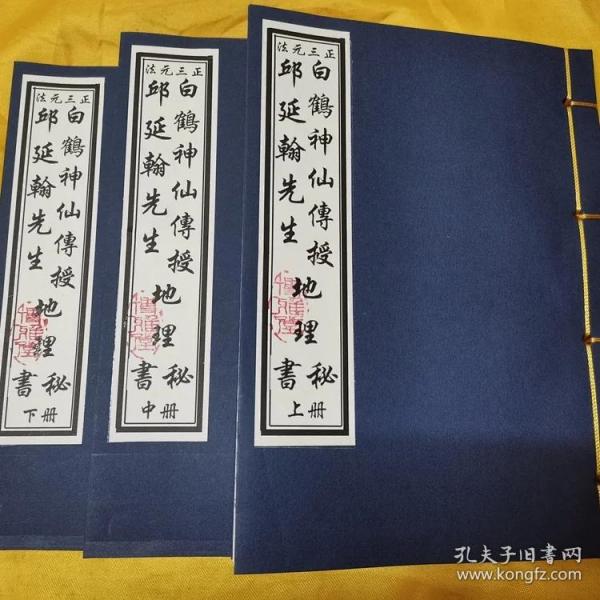 正三元法
白鶴神仙傳授
邱延翰先生
地理
秘書
上册
正三元法
白鶴神仙傳授
邱延翰先生
地理
秘書
中册
正三元法
白鶴神仙傳授
邱延翰先生
地理
秘書
下册
孔夫子旧書网
www.kongfz.com